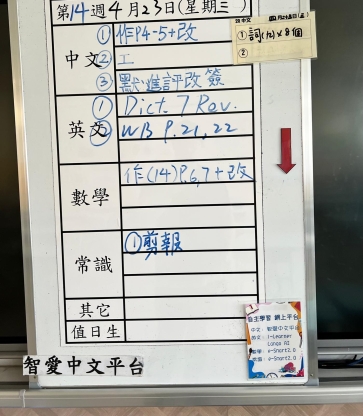 第14週4月23日(星期三)
中文
①作P4-5+改
②工
③默進評改簽
英文
①Dict. 7 Rev.
②WB P.21,22
數學
作(14)P.6,7+改
常識
①剪報
其它
值日生
智愛中文平台
①詞(12)x8個
②
自主學習 網上平台
中文：智愛中文平台
英文：i-Learner